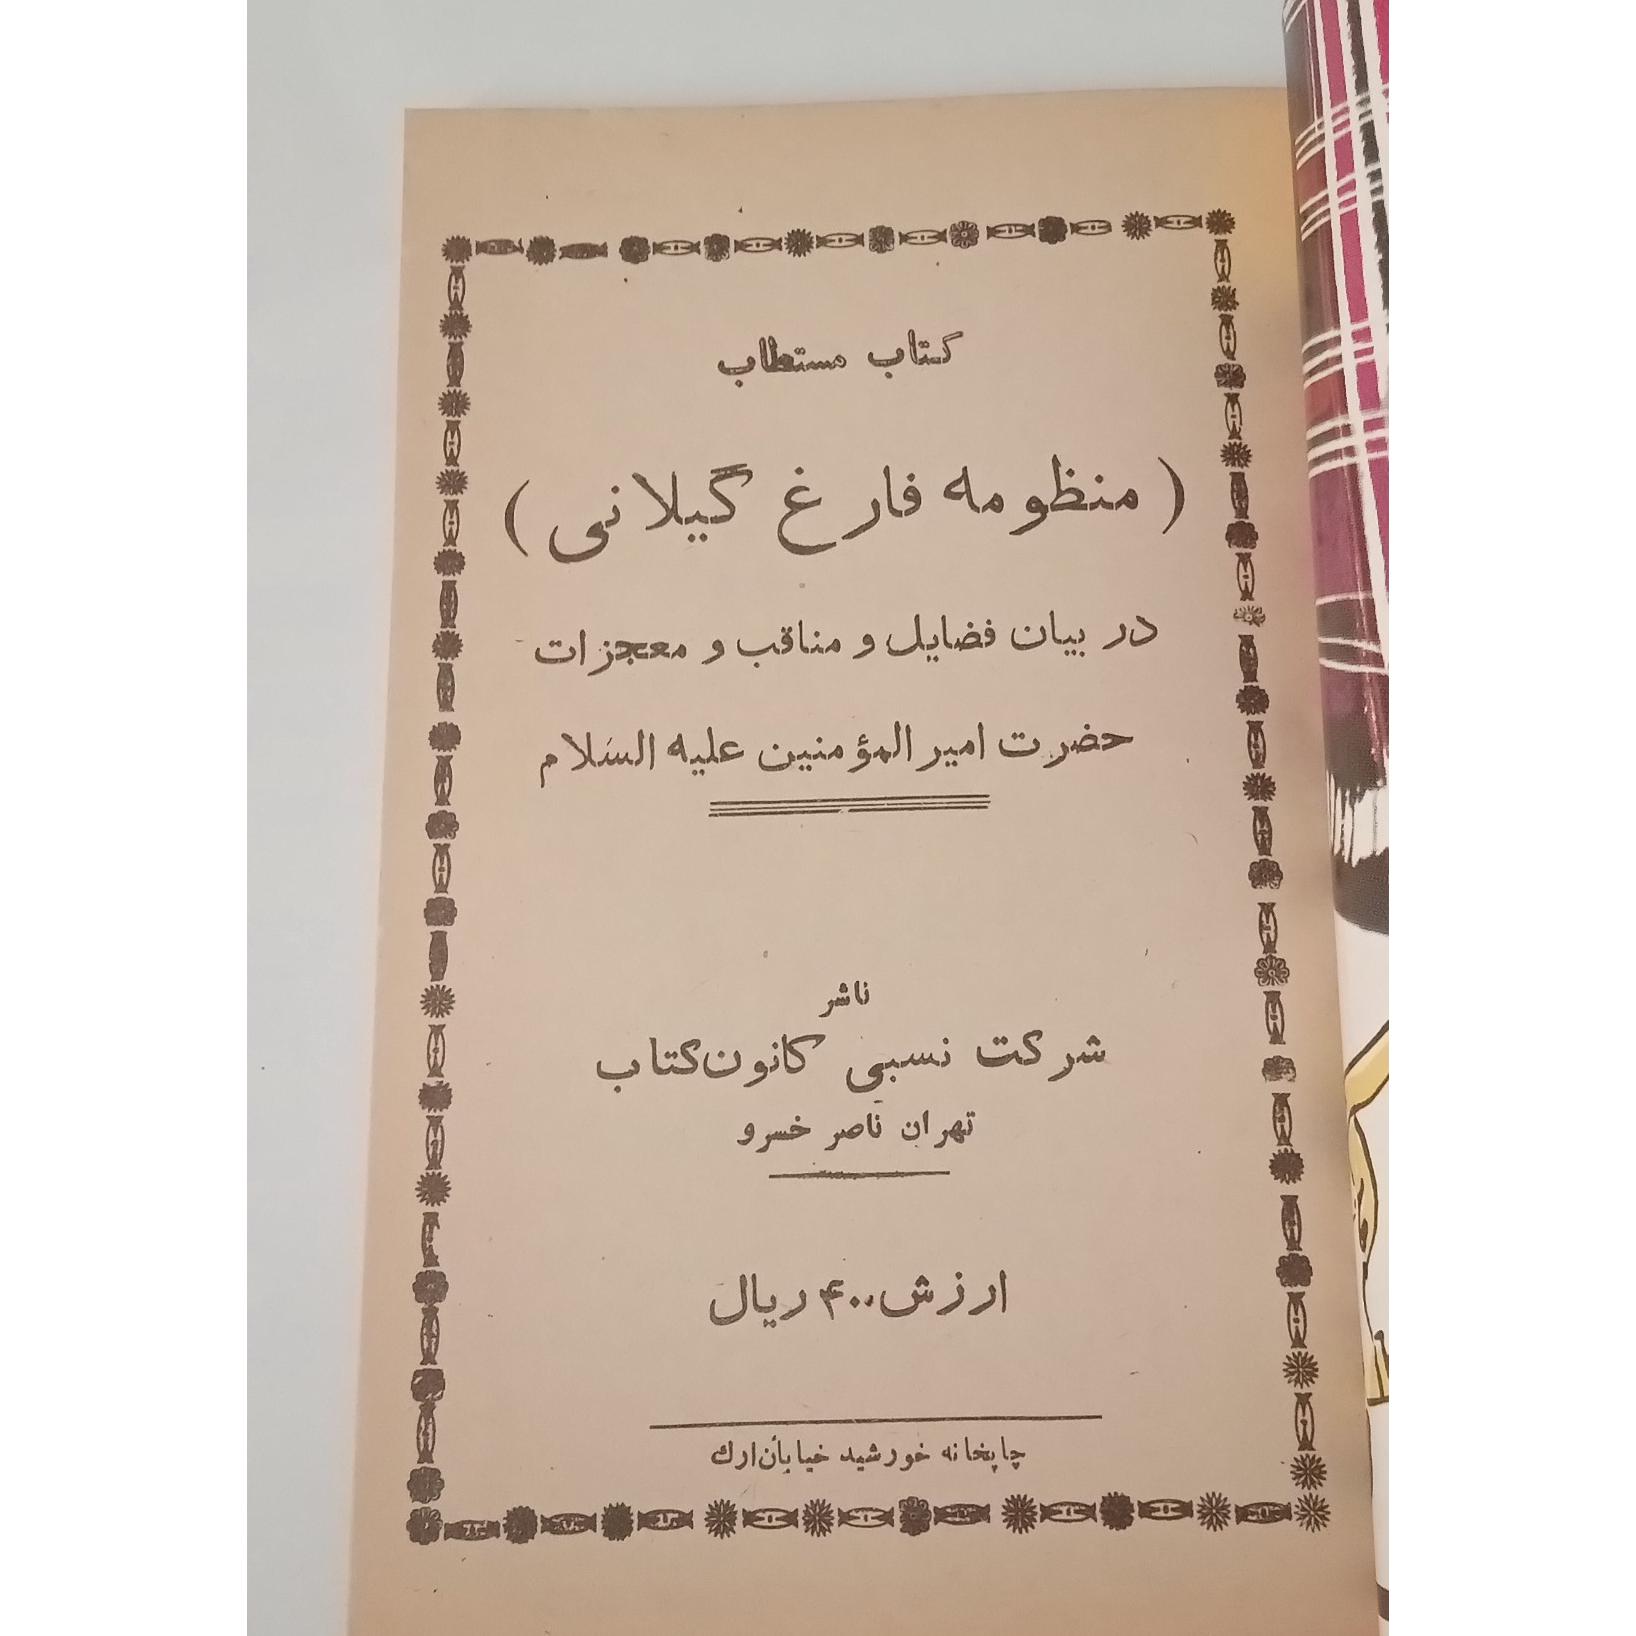 کتاب مستطاب
( منظومه فارغ گیلانی )
در بیان فضایل و مناقب و معجزات
حضرت امیر المؤمنین علیه السلام
ناشر
شرکت نسبی کانون کتاب
تهران ناصر خسرو
ارزش ۴۰۰ ریال
چاپخانه خورشید خیابان ارک